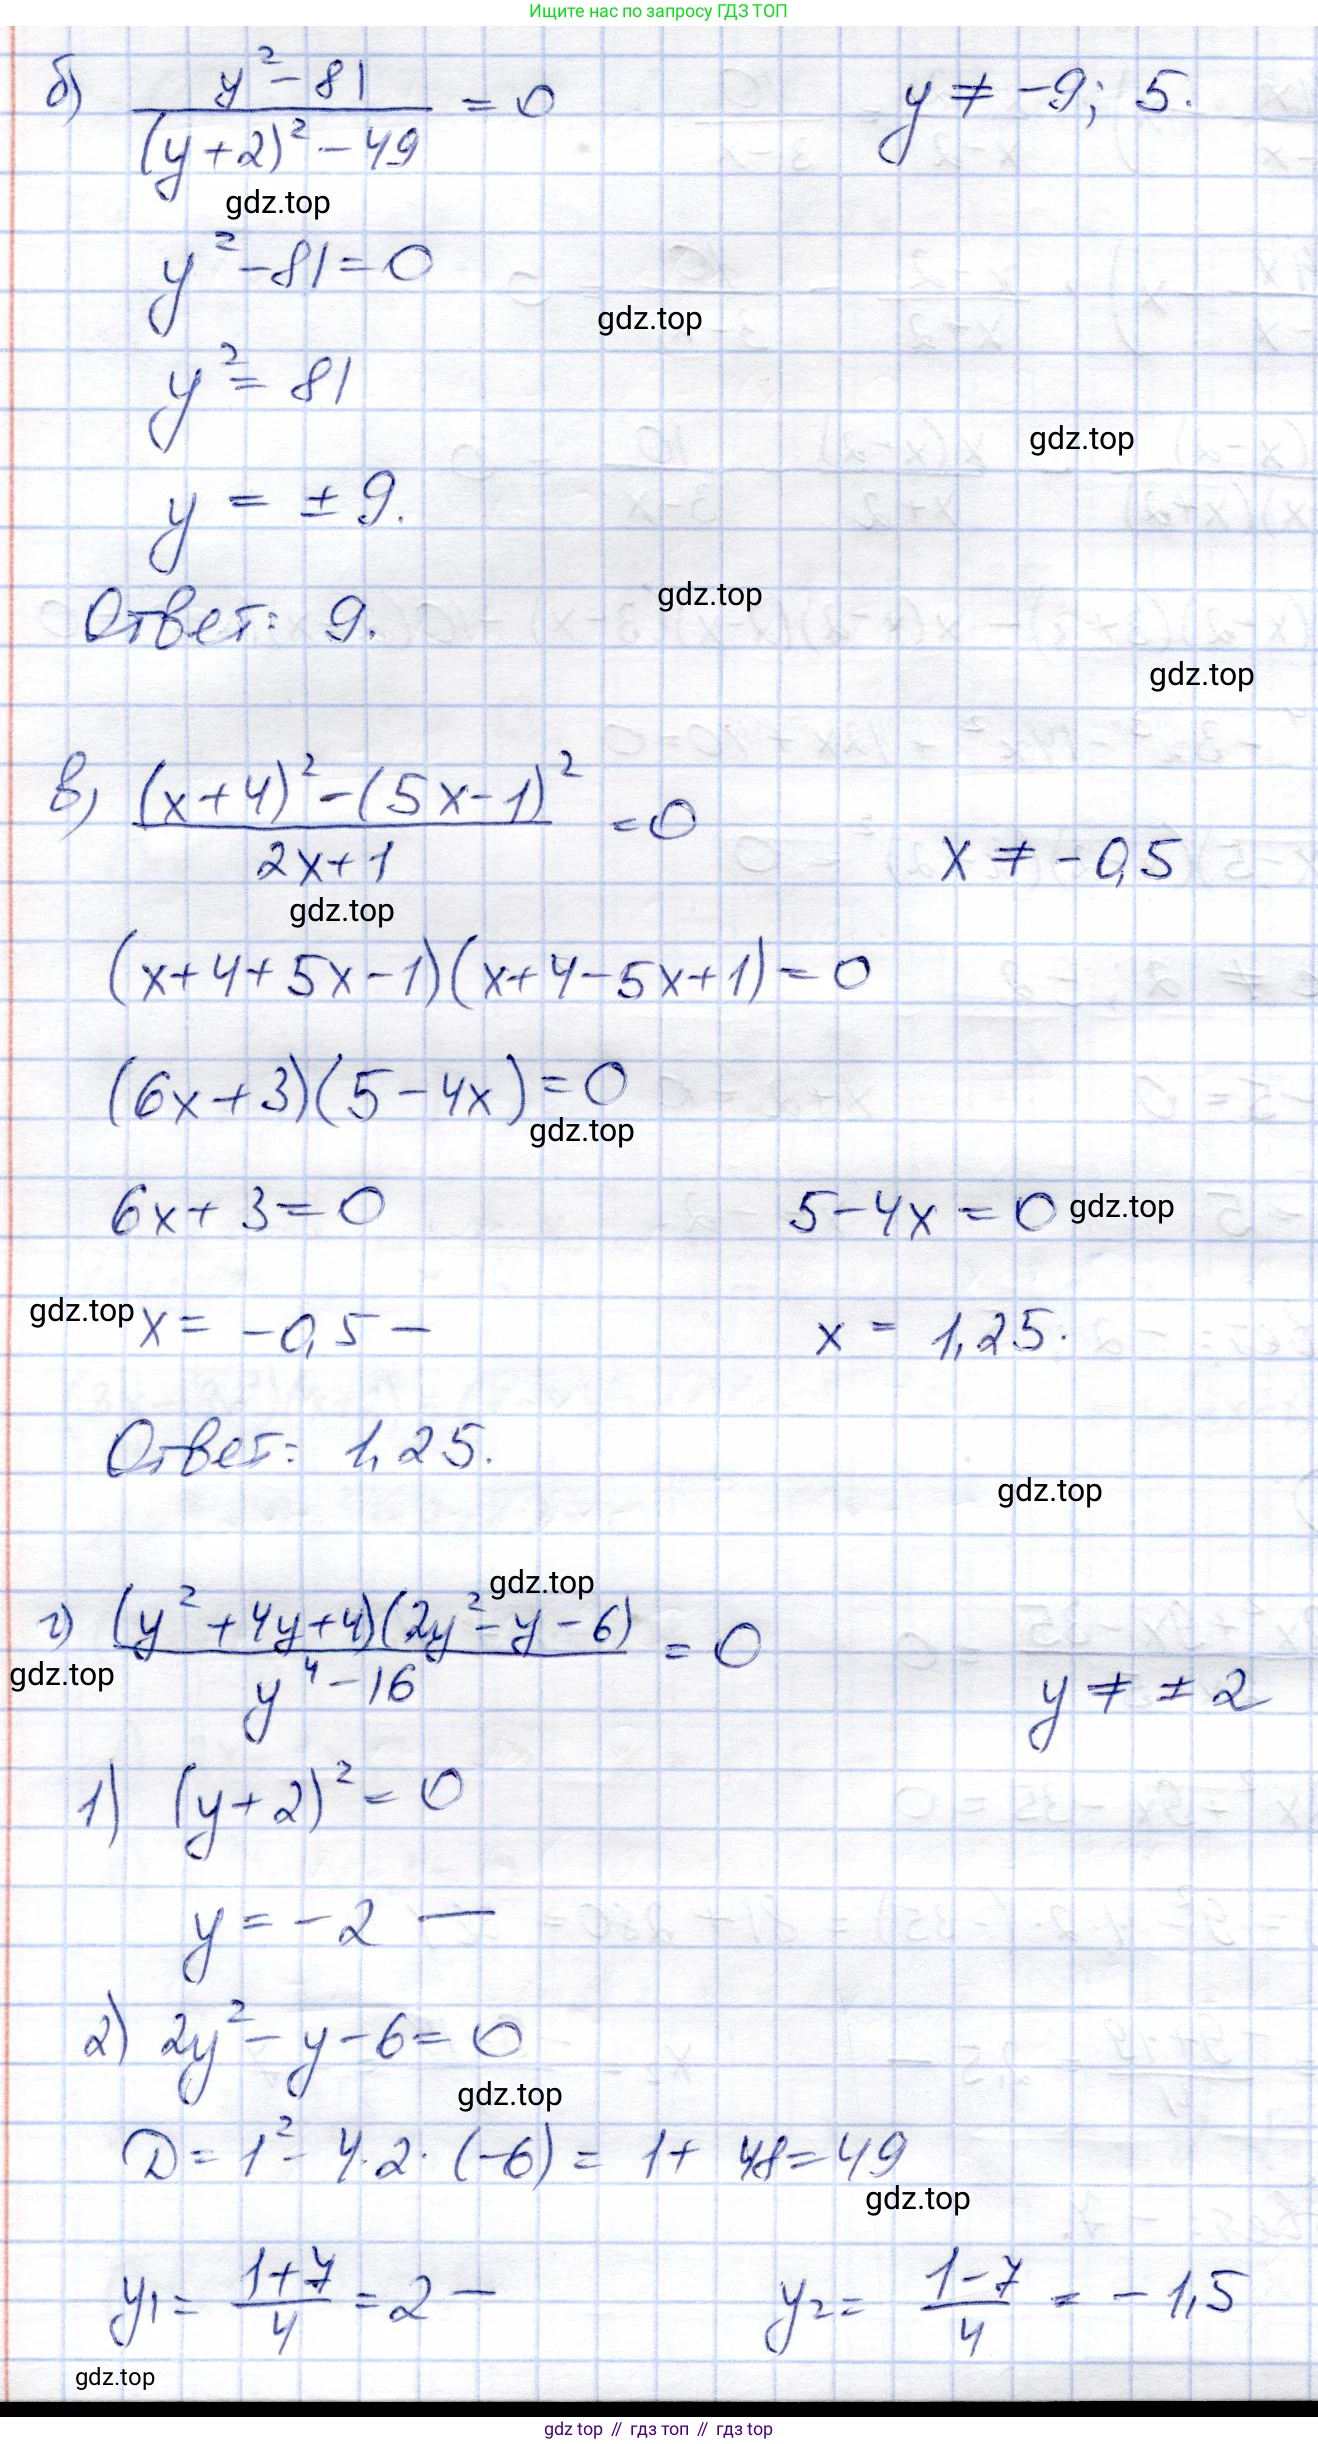 Ищите нас по запросу ГДЗ ТОП
б) (y² - 81) / ((y+2)² - 49) = 0     y ≠ -9; 5.
gdz.top
y² - 81 = 0
gdz.top
y² = 81
gdz.top
y = ± 9.
gdz.top
Ответ: 9.
gdz.top
в) ((x+4)² - (5x-1)²) / (2x+1) = 0     x ≠ -0,5
gdz.top
(x+4+5x-1)(x+4-5x+1) = 0
(6x+3)(5-4x) = 0
gdz.top
6x+3 = 0     5-4x = 0 gdz.top
gdz.top x = -0,5 —     x = 1,25.
Ответ: 1,25.
gdz.top
gdz.top
г) ((y²+4y+4)(2y²-y-6)) / (y⁴-16) = 0     y ≠ ± 2
gdz.top
1) (y+2)² = 0
y = -2 —
2) 2y² - y - 6 = 0
gdz.top
D = 1² - 4·2·(-6) = 1 + 48 = 49
gdz.top
y₁ = (1+7)/4 = 2 —     y₂ = (1-7)/4 = -1,5
gdz.top
gdz top // гдз топ // gdz top